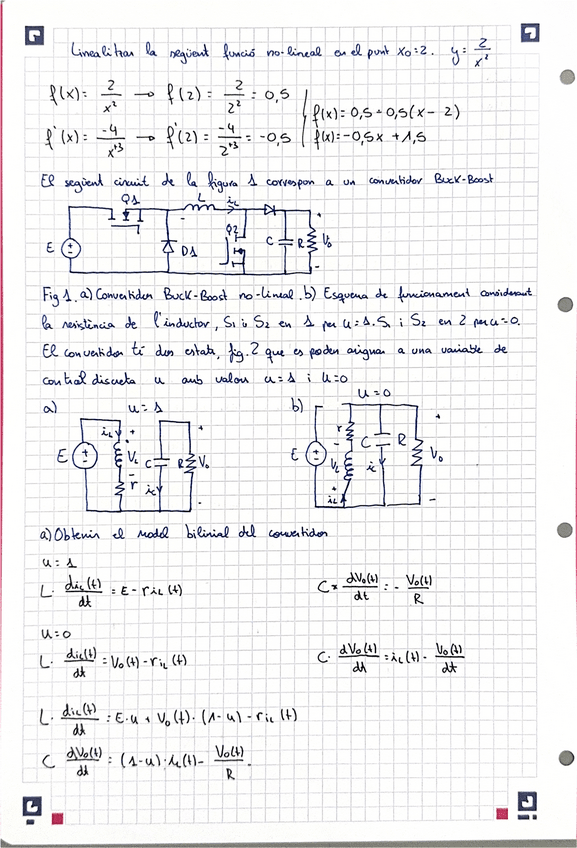 Linealitzar la següent funció no-lineal en el punt x0=2. y = 2/x²
f(x) = 2/x² → f(2) = 2/2² = 0,5
f(x) = 0,5 - 0,5(x - 2)
f'(x) = -4/x³ → f'(2) = -4/2³ = -0,5
f(x) = -0,5x + 1,5
El següent circuit de la figura 1 correspon a un convertidor Buck-Boost
Q1 L iL
E D1 Q2 C R Vo
+ -
Fig 1. a) Convertidor Buck-Boost no-lineal. b) Esquema de funcionament considerant
la resistència de l'inductor, S1 i S2 en 1 per u=1. S1 i S2 en 2 per u=0.
El convertidor té dos estats, fig. 2 que es poden asignar a una variable de
control discreta u amb valors u=1 i u=0
a) u=1
E iL + VL - r C ic R + Vo -
b) u=0
E r - VL + iL C ic R + Vo -
a) Obtenir el model bilinial del convertidor
u=1
L· diL(t)/dt = E - r iL(t)
C× dVo(t)/dt = - Vo(t)/R
u=0
L· diL(t)/dt = Vo(t) - r iL(t)
C· dVo(t)/dt = iL(t) - Vo(t)/dt
L· diL(t)/dt = E·u + Vo(t)·(1-u) - r iL(t)
C dVo(t)/dt = (1-u)·iL(t) - Vo(t)/R.